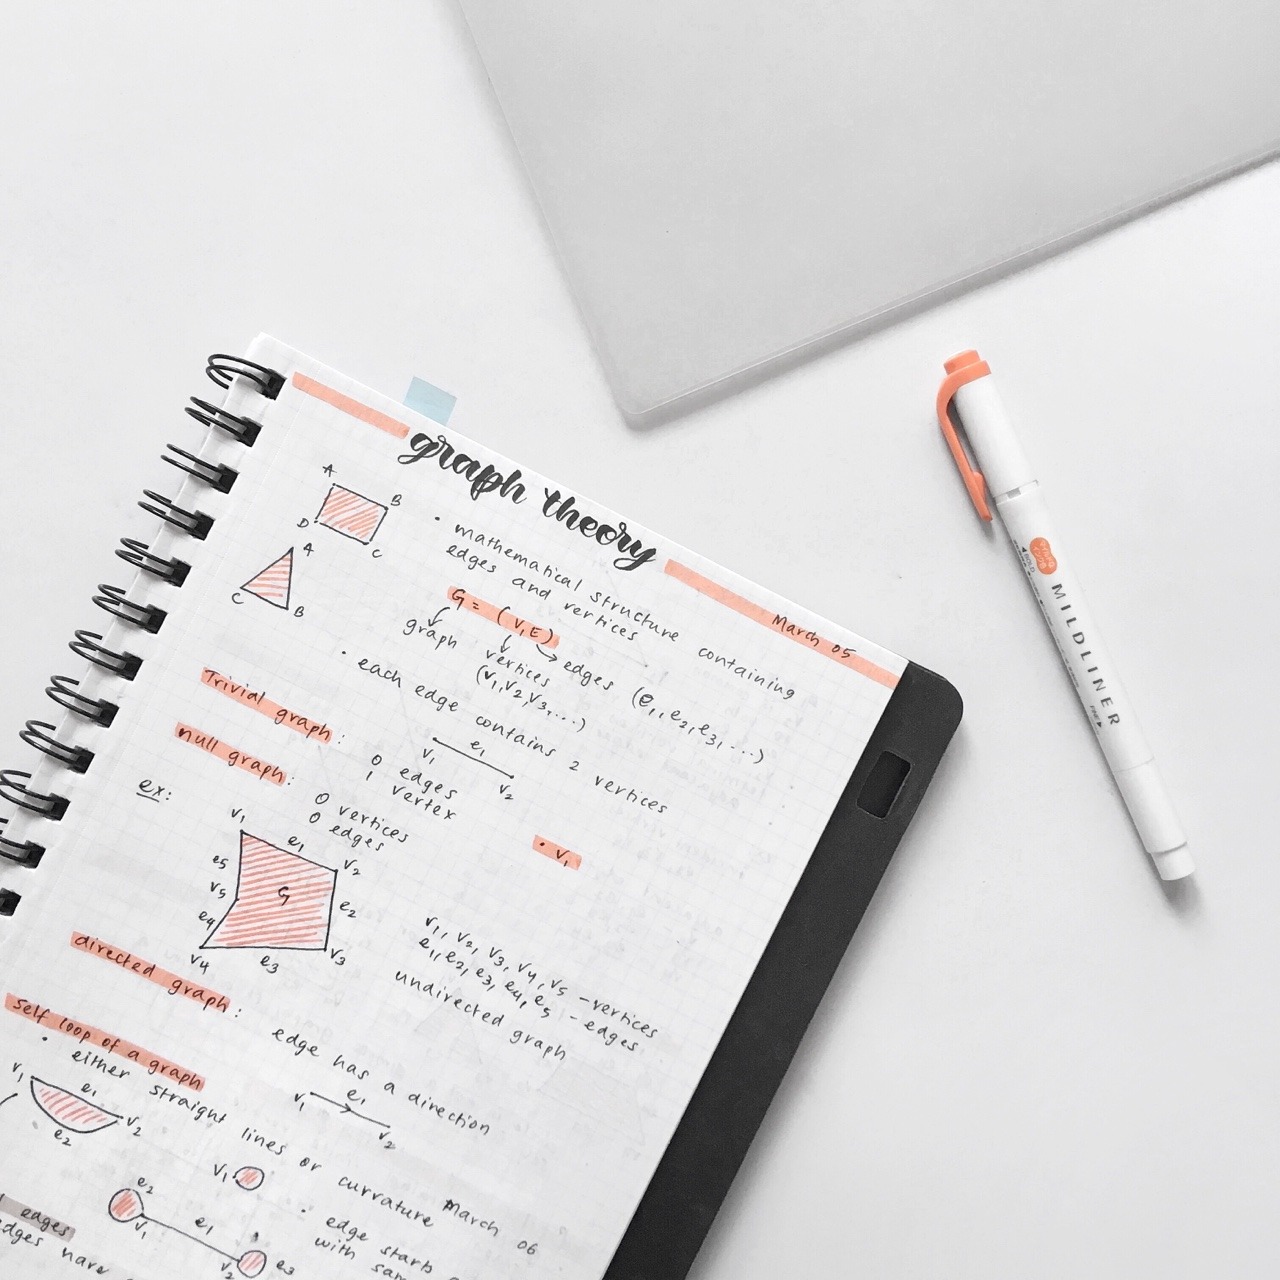 graph theory
March 05
A
B
D
C
A
C
B
• mathematical structure containing
edges and vertices
G = (V,E)
graph
vertices
(v1,v2,v3,...)
edges (e1,e2,e3,...)
• each edge contains 2 vertices
e1
v1
v2
Trivial graph:
0 edges
1 vertex
• v1
null graph:
0 vertices
0 edges
ex:
v1
e1
v2
e5
v5
G
e2
e4
v4
e3
v3
v1, v2, v3, v4, v5 - vertices
e1, e2, e3, e4, e5 - edges
undirected graph
directed graph:
edge has a direction
v1
e1
v2
self loop of a graph
• either straight lines or curvature
March 06
v1
e1
v2
e2
v1
• edge starts
with
e2
v1
e1
v2
e3
edges
edges have
MILDLINER
FINE